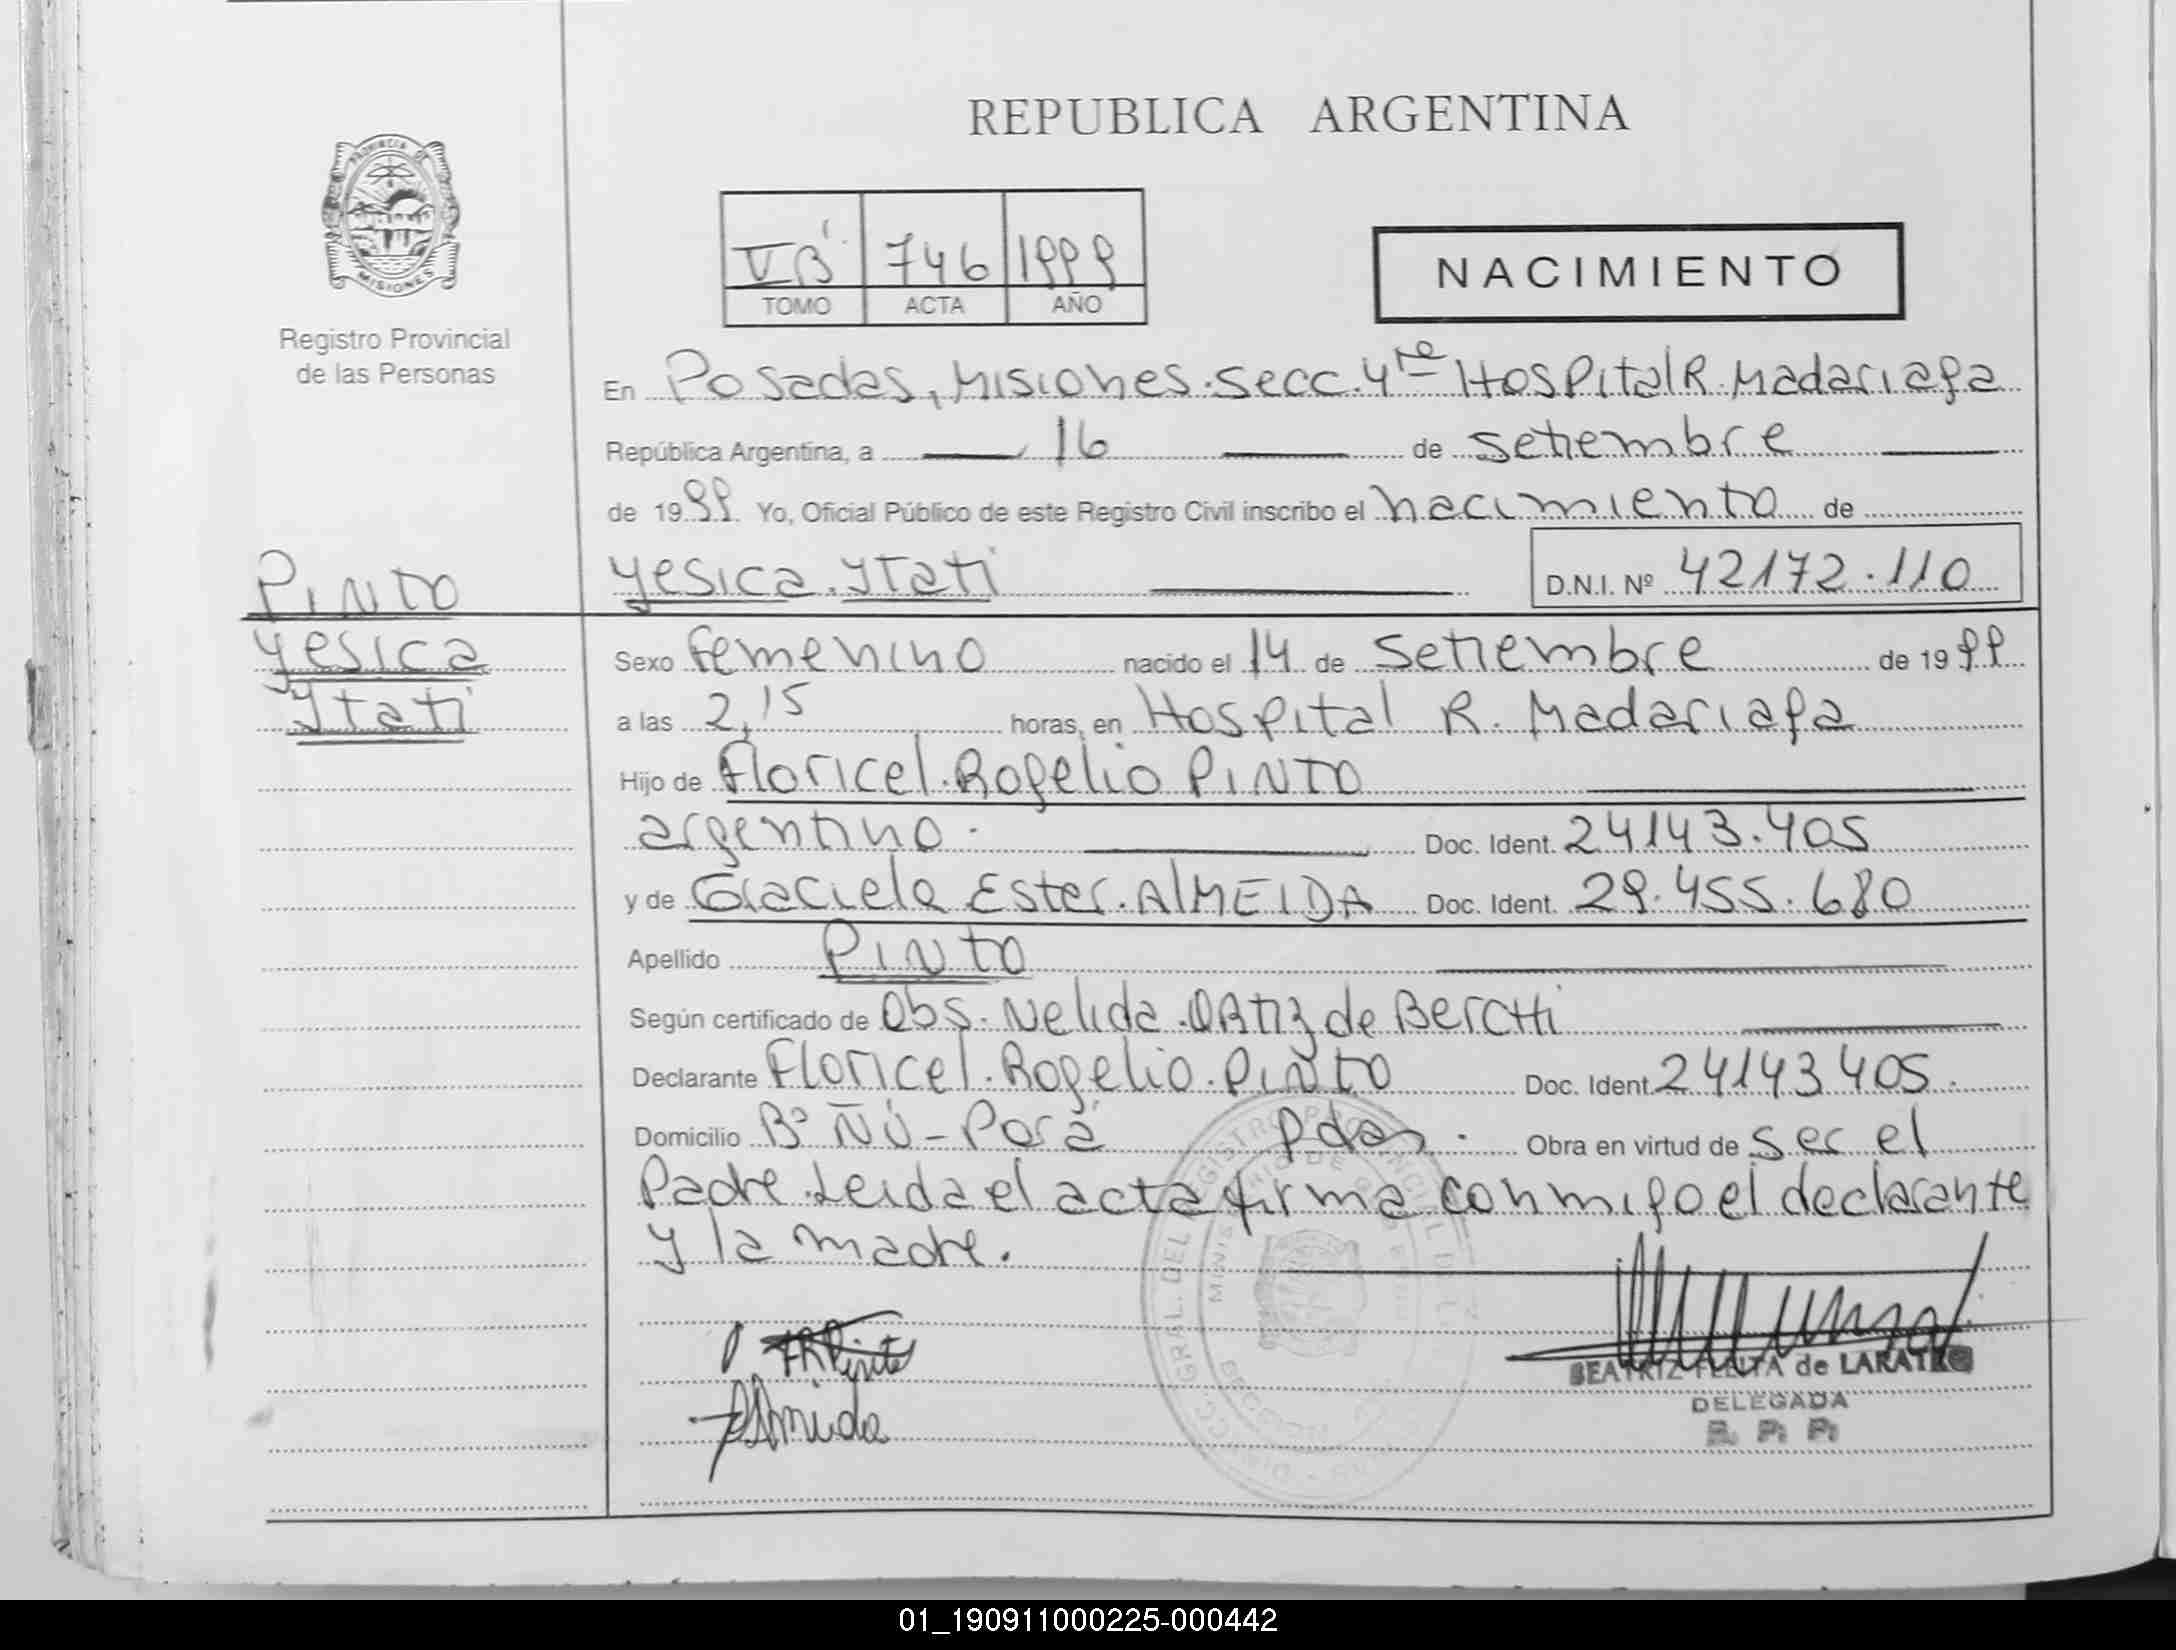 REPUBLICA ARGENTINA
PROVINCIA DE
MISIONES
Registro Provincial
de las Personas
VB 746 1999
TOMO ACTA AÑO
NACIMIENTO
En Posadas, Misiones. Secc. 4ta Hospital R. Madariaga
República Argentina, a 16 de setiembre
de 1999 Yo, Oficial Público de este Registro Civil inscribo el nacimiento de
Yesica. Ytati D.N.I. Nº 42172.110
PINTO
Yesica
Ytati
Sexo femenino nacido el 14 de setiembre de 1999
a las 2,15 horas, en Hospital R. Madariaga
Hijo de Floricel. Rogelio PINTO
argentino. Doc. Ident. 24143.405
y de Graciela Ester. AlMEIDA Doc. Ident. 29.455.680
Apellido PINTO
Según certificado de Obs. Nelida. ORtiz de BercHi
Declarante Floricel. Rogelio. Pinto Doc. Ident. 24143405.
Domicilio Bº ÑÚ - Porá Pdas. Obra en virtud de ser el
Padre. Leida el acta firma conmigo el declarante
y la madre.
FRPinto
BEATRIZ de
DELEGADA
R. P. P.
01_190911000225-000442